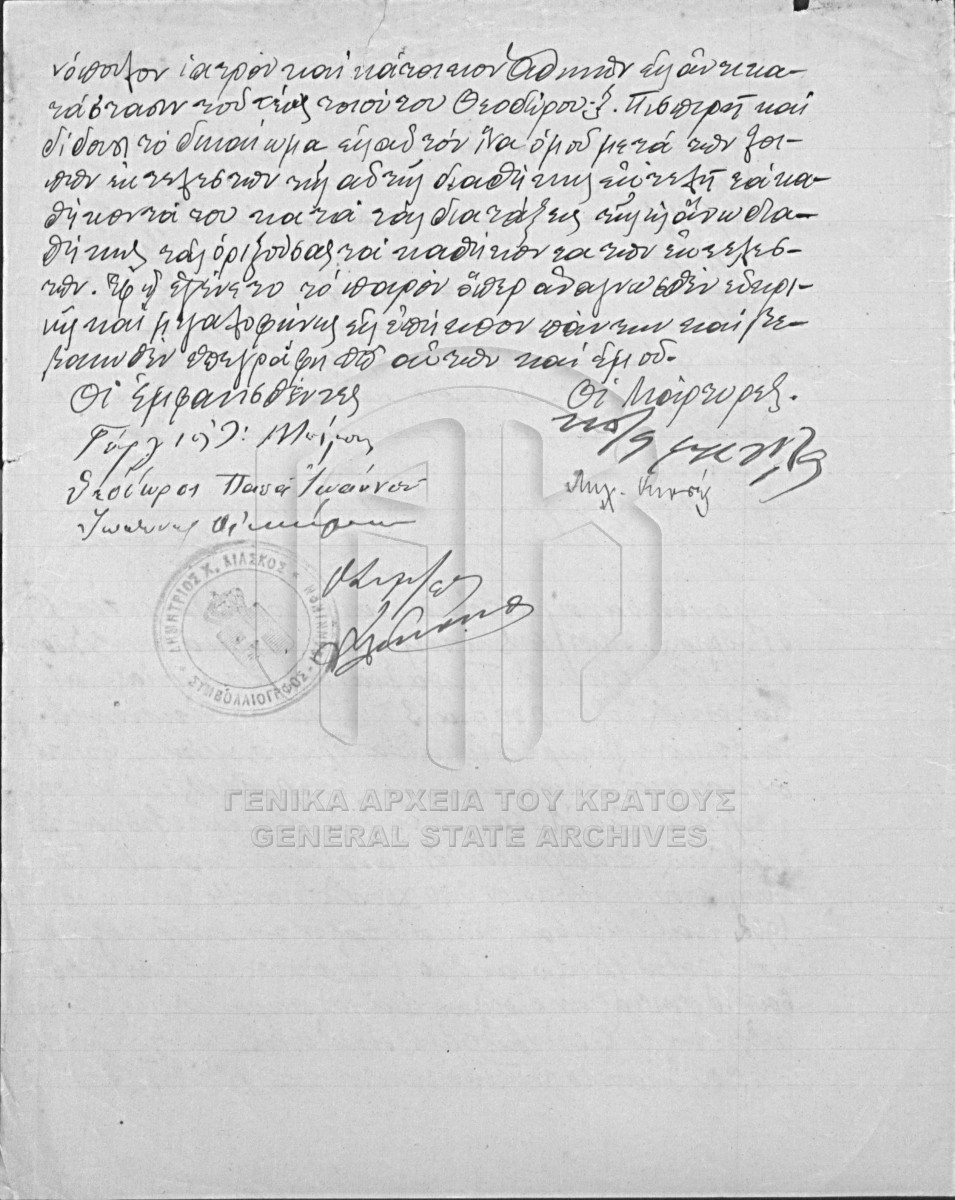 νόπουλον ἰατρόν καί κάτοικον Ἀθηνῶν εἰς ἀντικα-
τάστασιν τοῦ τέως τοιούτου Θεοδώρου Πισπιρῆ καί
δίδουσι τό δικαίωμα εἰς αὐτόν ἵνα ὁμοῦ μετά τῶν λοι-
πῶν ἐκτελεστῶν τῆς αὐτῆς διαθήκης ἐκτελῆ τά κα-
θήκοντά του κατά τάς διατάξεις τῆς ὡς ἄνω δια-
θήκης τάς ὁριζούσας τά καθήκοντα τῶν ἐκτελεσ-
τῶν. Ἐφ' ᾧ ἐγένετο τό παρόν ὅπερ ἀναγνωσθέν εὐκρι-
νῶς καί μεγαλοφώνως εἰς ἐπήκοον πάντων καί βε-
βαιωθέν ὑπεγράφη παρ' αὐτῶν καί ἐμοῦ.
Οἱ Ἐμφανισθέντες
Οἱ Μάρτυρες.
Θεόδωρος Παπᾶ Ἰωάννου
Μιχ.
Ἰωάννης
ΔΗΜΗΤΡΙΟΣ Χ. ΛΙΑΣΚΟΣ
ΣΥΜΒΟΛΑΙΟΓΡΑΦΟΣ
ΓΕΝΙΚΑ ΑΡΧΕΙΑ ΤΟΥ ΚΡΑΤΟΥΣ
GENERAL STATE ARCHIVES